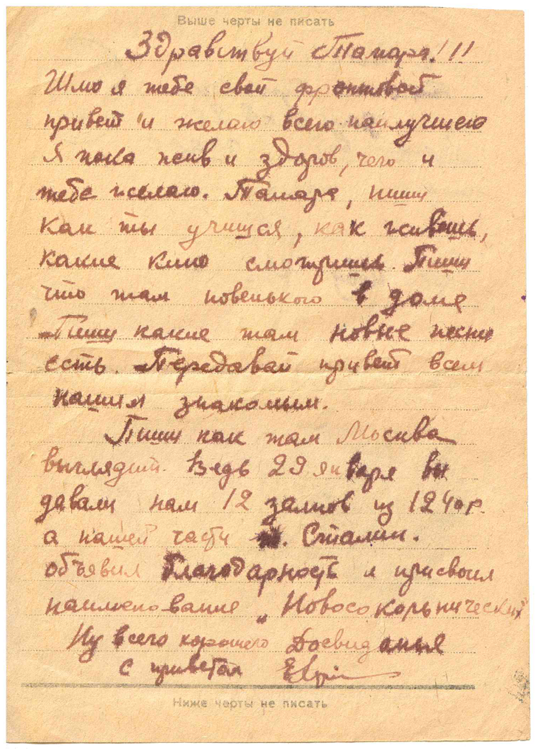 Выше черты не писать
Здравствуй Тамара!!!
Шлю я тебе свой фронтовой
привет и желаю всего наилучшего
Я пока жив и здоров, чего и
тебе желаю. Тамара, пиши
как ты учишся, как живешь,
какие кино смотришь. Пиши
что там новенького в доме
Пиши какие там новые песни
есть. Передавай привет всем
нашим знакомым.
Пиши как там Москва
выглядит. Ведь 29 января вы
давали нам 12 залпов из 124 ор.
а нашей части т. Сталин.
объявил благодарность и присвоил
наименование „Новосокольнический"
Ну всего хорошего Досвиданья
с приветом
Ниже черты не писать